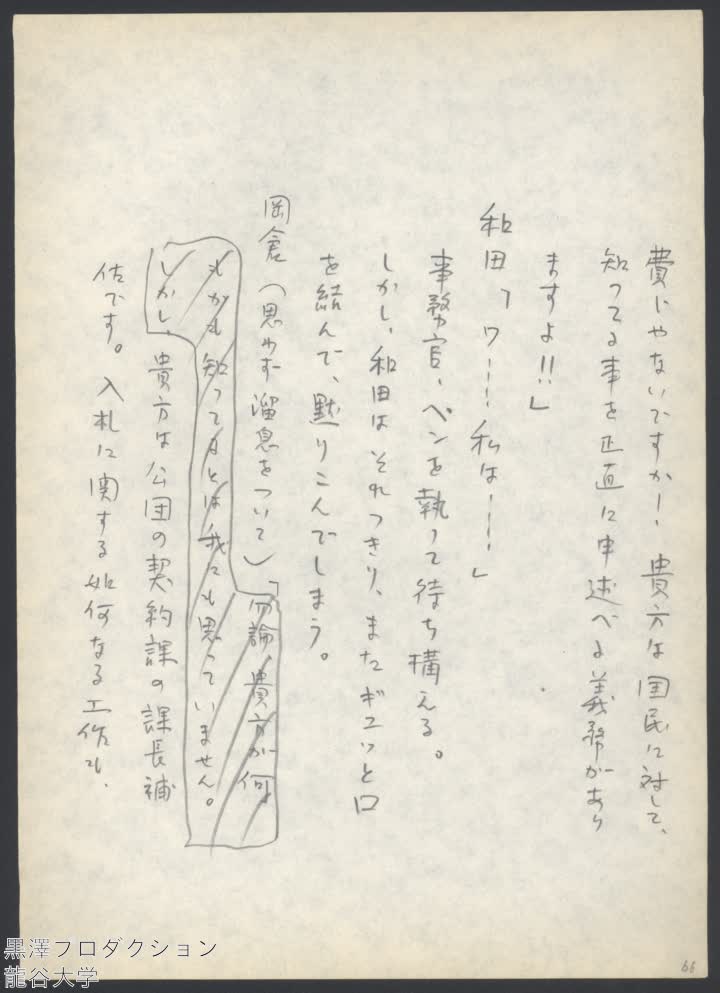 費じゃないですか！ 貴方は国民に対して、
知ってる事を正直に申述べる義務があり
ますよ!!」
和田「ワ……私は……」
事務官、ペンを執って待ち構える。
しかし、和田はそれっきり、またギュッと口
を結んで、黙りこんでしまう。
岡倉（思わず溜息をついて）「勿論、貴方が何
もかも知ってるとは我々も思っていません。
しかし、貴方は公団の契約課の課長補
佐です。入札に関する如何なる工作も、
66
黒澤プロダクション
龍谷大学